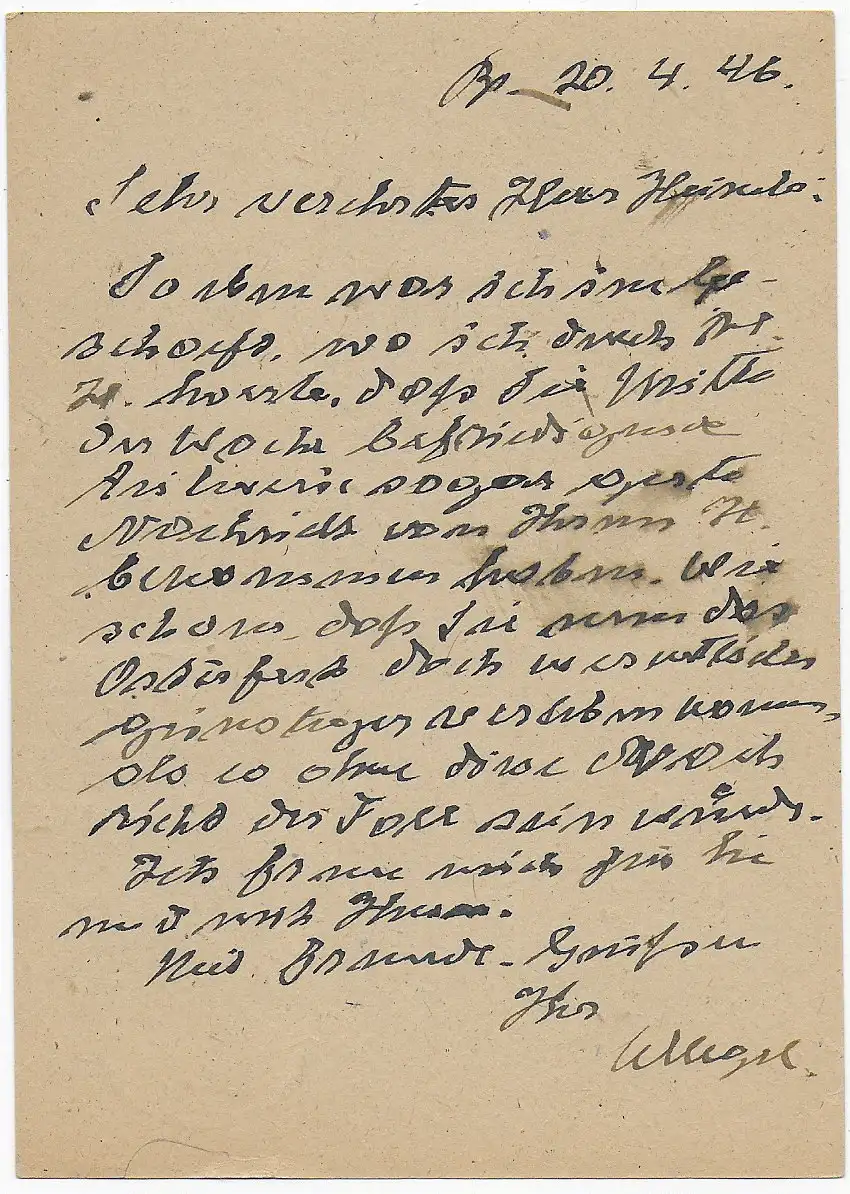 20. 4. 46.
Sehr verehrter Herr
Soeben war ich im Ge-
schäft, wo ich durch
H. hoerte, dass Sie Mitte
der Woche befriedigende
teilweise sogar gute
Nachricht von Ihrem H.
bekommen haben. Wie
schoen, dass Sie nun das
Osterfest doch wesentlich
guenstiger verleben
als es ohne diese Nach
richt der Fall sein würde.
Ich freue mich für Sie
und mit Ihnen.
Mit Freundl. Grüssen
Ihr